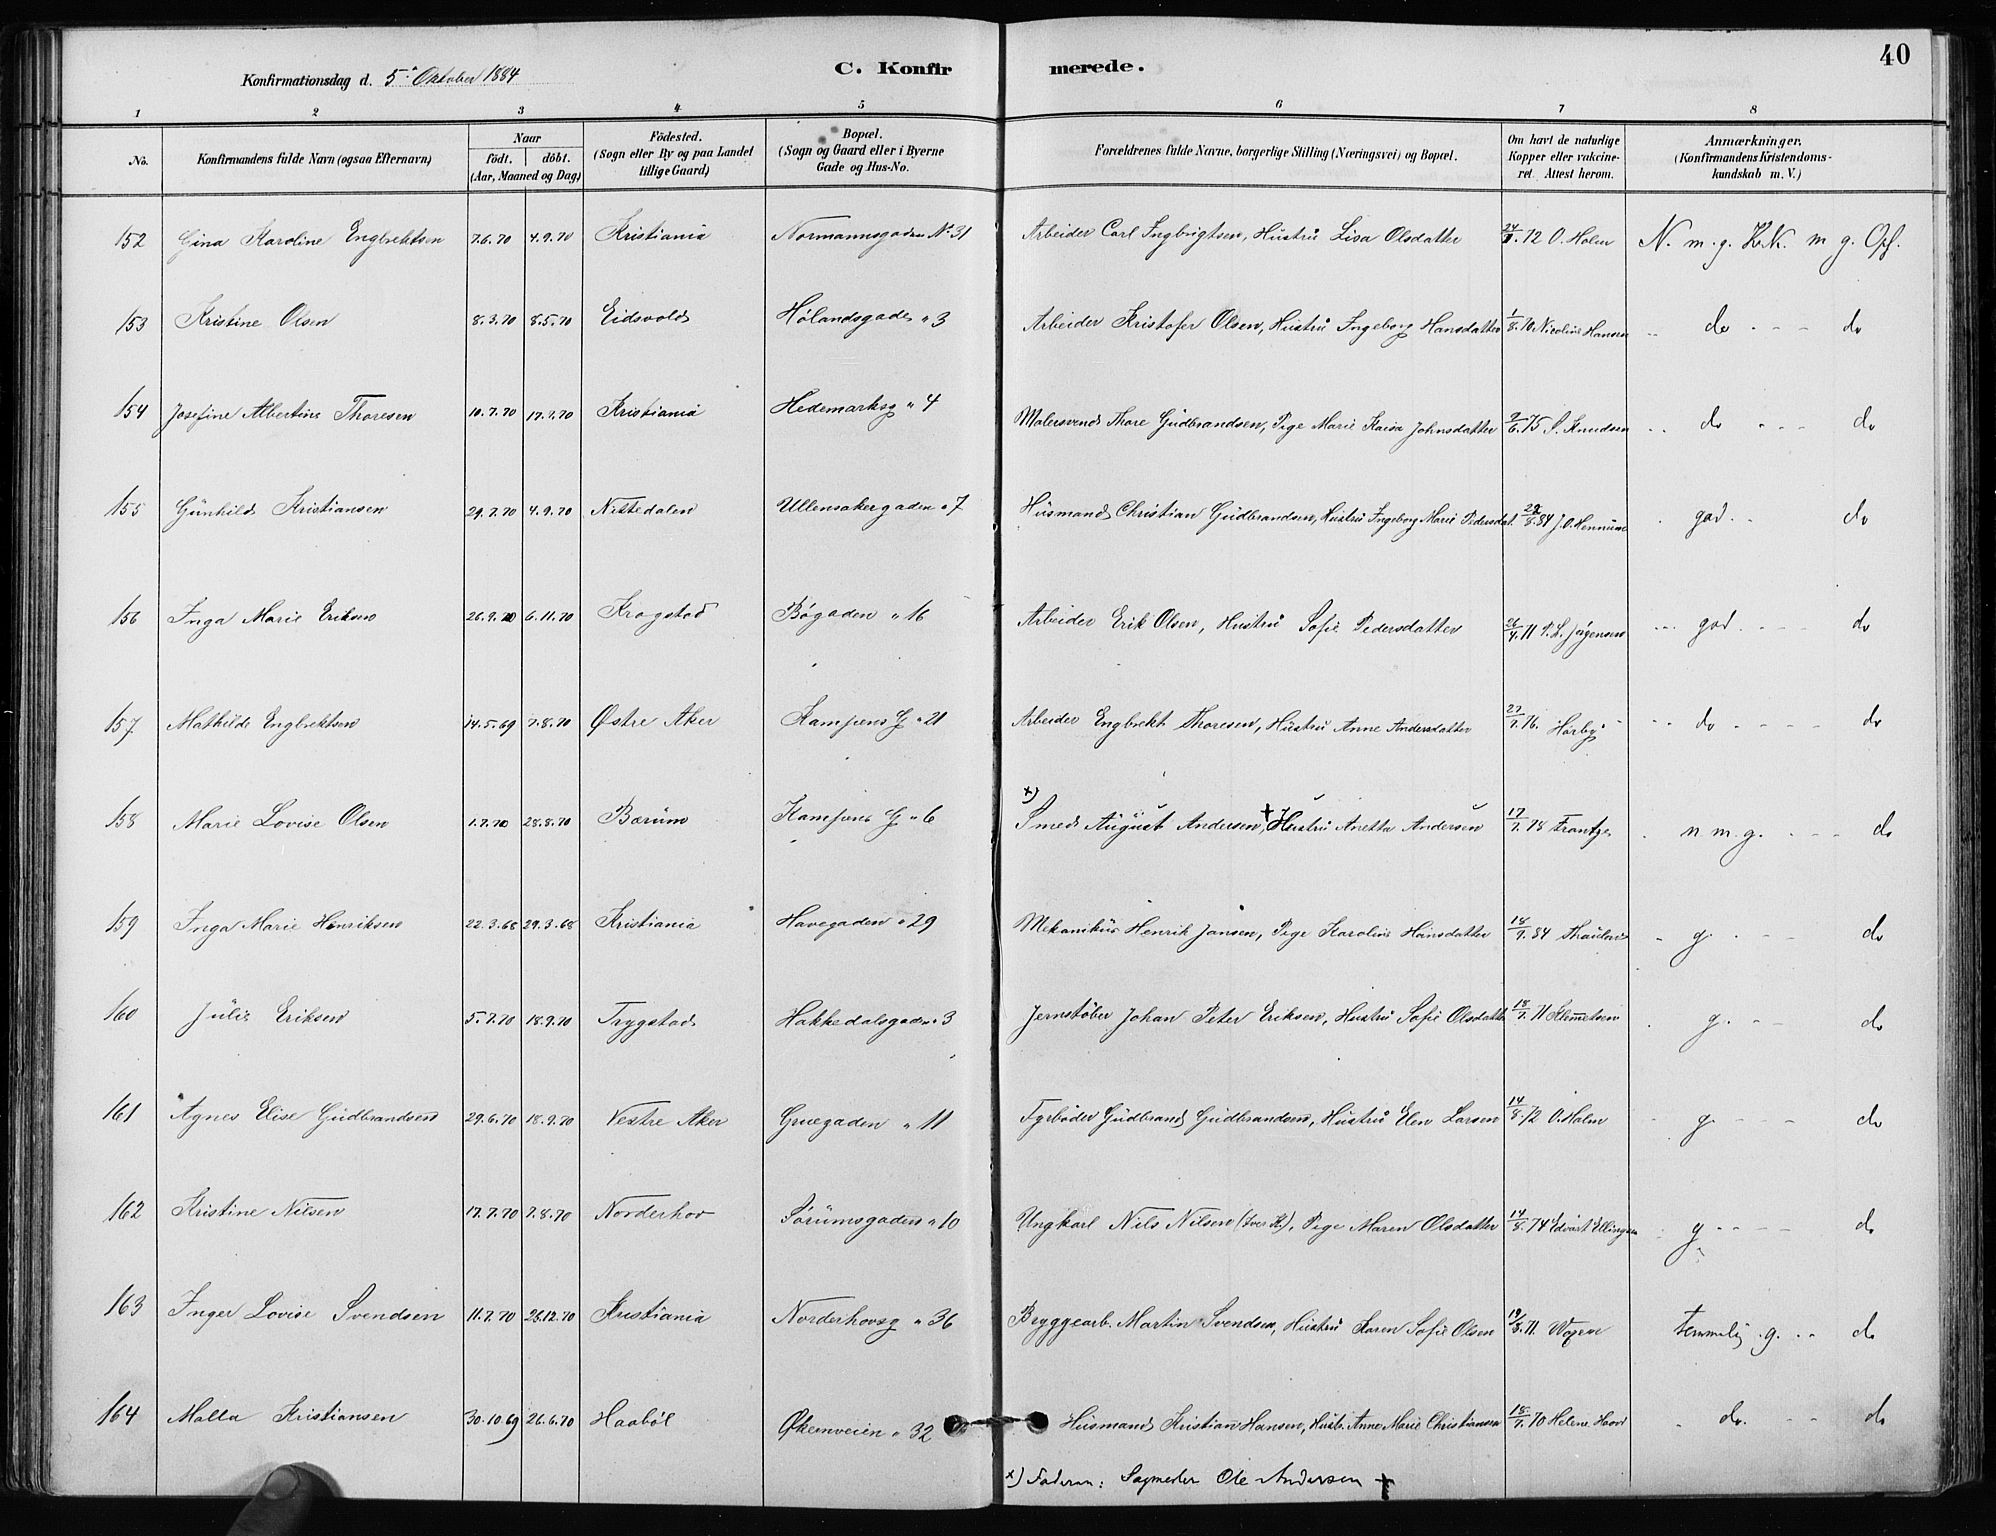 40
Konfirmationsdag d. 5te Oktober 1884 C. Konfirmerede.
1 2 3 4 5 6 7 8
No. Konfirmandens fulde Navn (ogsaa Efternavn) Naar født. døbt. (Aar, Maaned og Dag) Födested. (Sogn eller By og paa Landet tillige Gaard) Bopæl. (Sogn og Gaard eller i Byerne Gade og Hus-No. Forældrenes fulde Navne, borgerlige Stilling (Næringsvei) og Bopæl. Om havt de naturlige Kopper eller vaccineret. Attest herom. Anmærkninger. (Konfirmandens Kristendomskundskab m. V.)
152 Gina Karoline Engbrektsen 7.6.70 4.9.70 Kristiania Normannsgaden No. 31 Arbeider Carl Ingbrigtsen, Hustru Lisa Olsdatter 12 O. Holm N. m. g. K.K. m g. Opf.
153 Kristine Olsen 8.3.70 8.5.70 Eidsvold Hølandsgade " 3 Arbeider Kristofer Olsen, Hustru Ingeborg Hansdatter 1/8.70 Nicoline Hansen do do
154 Josefine Albertine Thoresen 10.7.70 17.7.70 Kristiania Hedemarksg " 4 Malersvend Thore Gudbrandsen, Pige Marie Kaisa Johnsdatter 75 S. Knudsen do do
155 Gunhild Kristiansen 29.7.70 4.9.70 Nittedalen Ullensakergaden " 7 Husmand Christian Gudbrandsen, Hustru Ingeborg Marie Pedersdat. 84 J. O. Hennum god do
156 Inga Marie Eriksen 26.9.70 6.11.70 Krogstad Bøgaden " 16 Arbeider Erik Olsen, Hustru Sofie Pedersdatter 26/4.71 P. L. Jørgensen god do
157 Mathilde Engbrektsen 14.5.69 7.8.70 Østre Aker Kampens G " 21 Arbeider Engbrekt Thoresen, Hustru Anne Andersdatter 27/7.76. Hørbye do do
158 Marie Lovise Olsen 1.7.70 28.8.70 Bærum Kampens G " 6 x) Smed August Andersen, + Hustru Anetta Andersen 17/7.78 Frantze n m. g. do
159 Inga Marie Henriksen 22.3.68 29.3.68 Kristiania Havegaden " 29 Mekanikus Henrik Jansen, Pige Karoline Hansdatter 18/9.84 Thaulow g. do
160 Julie Eriksen 5.7.70 18.9.70 Trygstad Hakkedalsgaden " 3 Jernstøber Johan Peter Eriksen, Hustru Sofie Olsdatter 18/7.71 Klemetsen g. do
161 Agnes Elise Gudbrandsen 29.6.70 18.9.70 Vestre Aker Gruegaden " 11 Fyrbøder Gudbrand Gudbrandsen, Hustru Elen Larsen 14/8.72 O. Holm g. do
162 Kristine Nilsen 17.7.70 7.8.70 Norderhov Sørumsgaden " 10 Ungkarl Nils Nilsen, Pige Maren Olsdatter 14/8.74 Edvart Ellingsen g do
163 Inger Lovise Svendsen 11.7.70 26.12.70 Kristiania Norderhovsg " 36 Bryggearb. Martin Svendsen, Hustru Karen Sofie Olsen 19/8.71. temmelig g. do
164 Malla Kristiansen 30.10.69 26.6.70 Haabøl Økernveien " 32 Husmand Kristian Hansen, Hustr. Anne Marie Christiansen 18/7.70 Helene do. do
x) Faderen: Sagmester Ole Andersen +